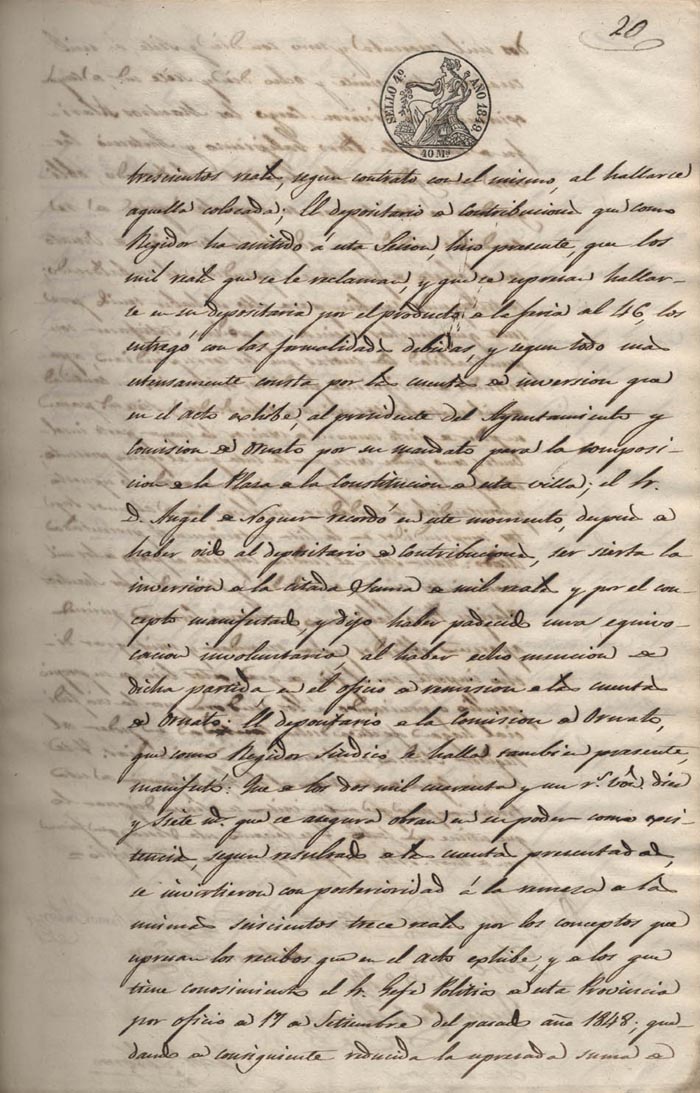 20
SELLO 4º AÑO 1849.
40 Ms
trescientos reales, segun contrato con el mismo, al hallarce
aquella colocada; El depositario de Contribuciones que como
Regidor ha asistido á esta Sesion, hiso presente, que los
mil reales que ce le reclaman, y que ce expresan hallar-
ce en su depositaria por el producto de la feria del 46, los
entregó con las formalidades debidas, y segun todo mas
estensamente consta por la cuenta de inversion que
en el acto exhibe, al presidente del Ayuntamiento y
Comision de Ornato por su mandato para la composi-
cion de la Plasa de la Constitucion de esta villa; el Sr.
D. Angel de Noguer recordó en este momento, despues de
haber oido al depositario de Contribuciones, ser sierta la
inversion de la citada Suma de mil reales y por el con-
cepto manifestado, y dijo haber padecido una equivo-
cacion involuntaria, al haber echo mencion de
dicha partida, en el oficio de remision de la cuenta
de Ornato: El depositario de la Comision de Ornato,
que como Regidor Sindico se halla tambien presente,
manifestó: Que de los dos mil cuarenta y un rs. von. dies
y siete ms. que ce asegura obran en su poder como exis-
tencia, segun resultado de la cuenta presentada,
ce invirtieron con posterioridad á la remesa de la
misma suiscientos trece reales por los conceptos que
expresan los recibos que en el acto exhibe, y de los que
tiene conosimiento el Sr. Gefe Politico de esta Provincia
por oficio de 17 de Setiembre del pasado año 1848; que-
dando de consiguiente reducida la expresada suma de